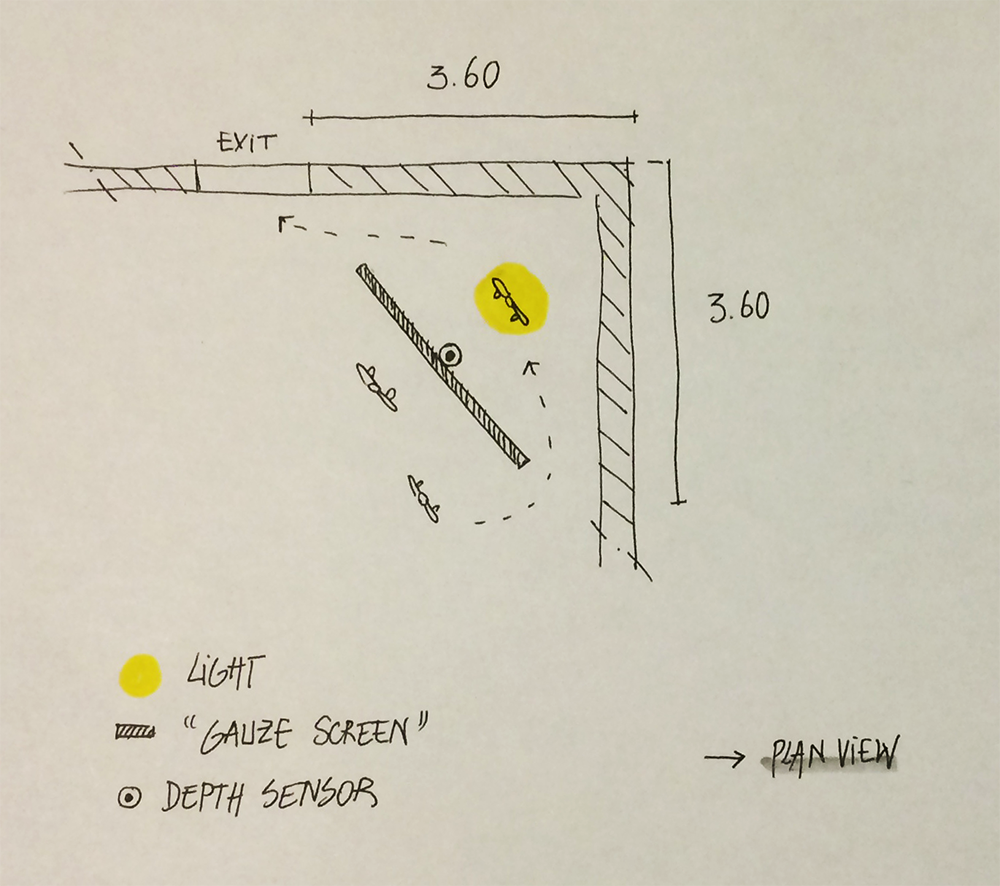 3.60
EXIT
3.60
LIGHT
"GAUZE SCREEN"
DEPTH SENSOR
→ PLAN VIEW